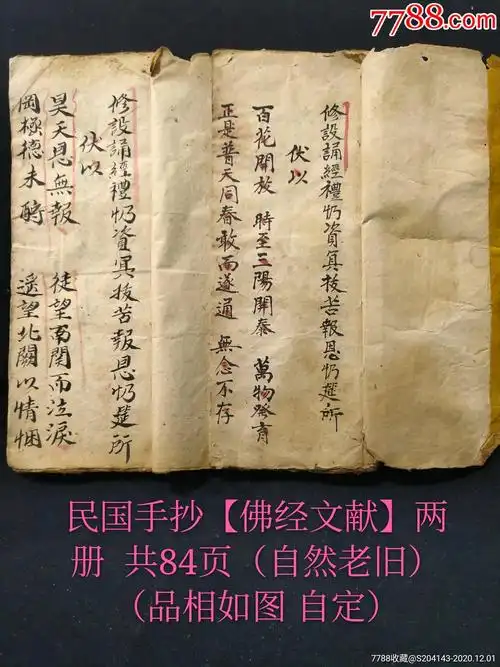 7788.com
修設誦經禮忏資冥拔苦報恩忏筵所
伏以
百花開放 時至三陽開泰 萬物發育
正是普天同春敢而遂通 無念不存
修設誦經禮忏資冥拔苦報恩忏筵所
伏以
昊天恩無報 徒望南閣而泣淚
罔極德未酧 遥望北闕以情悃
民国手抄【佛经文献】两
册 共84页（自然老旧）
（品相如图 自定）
7788收藏@S204143-2020.12.01